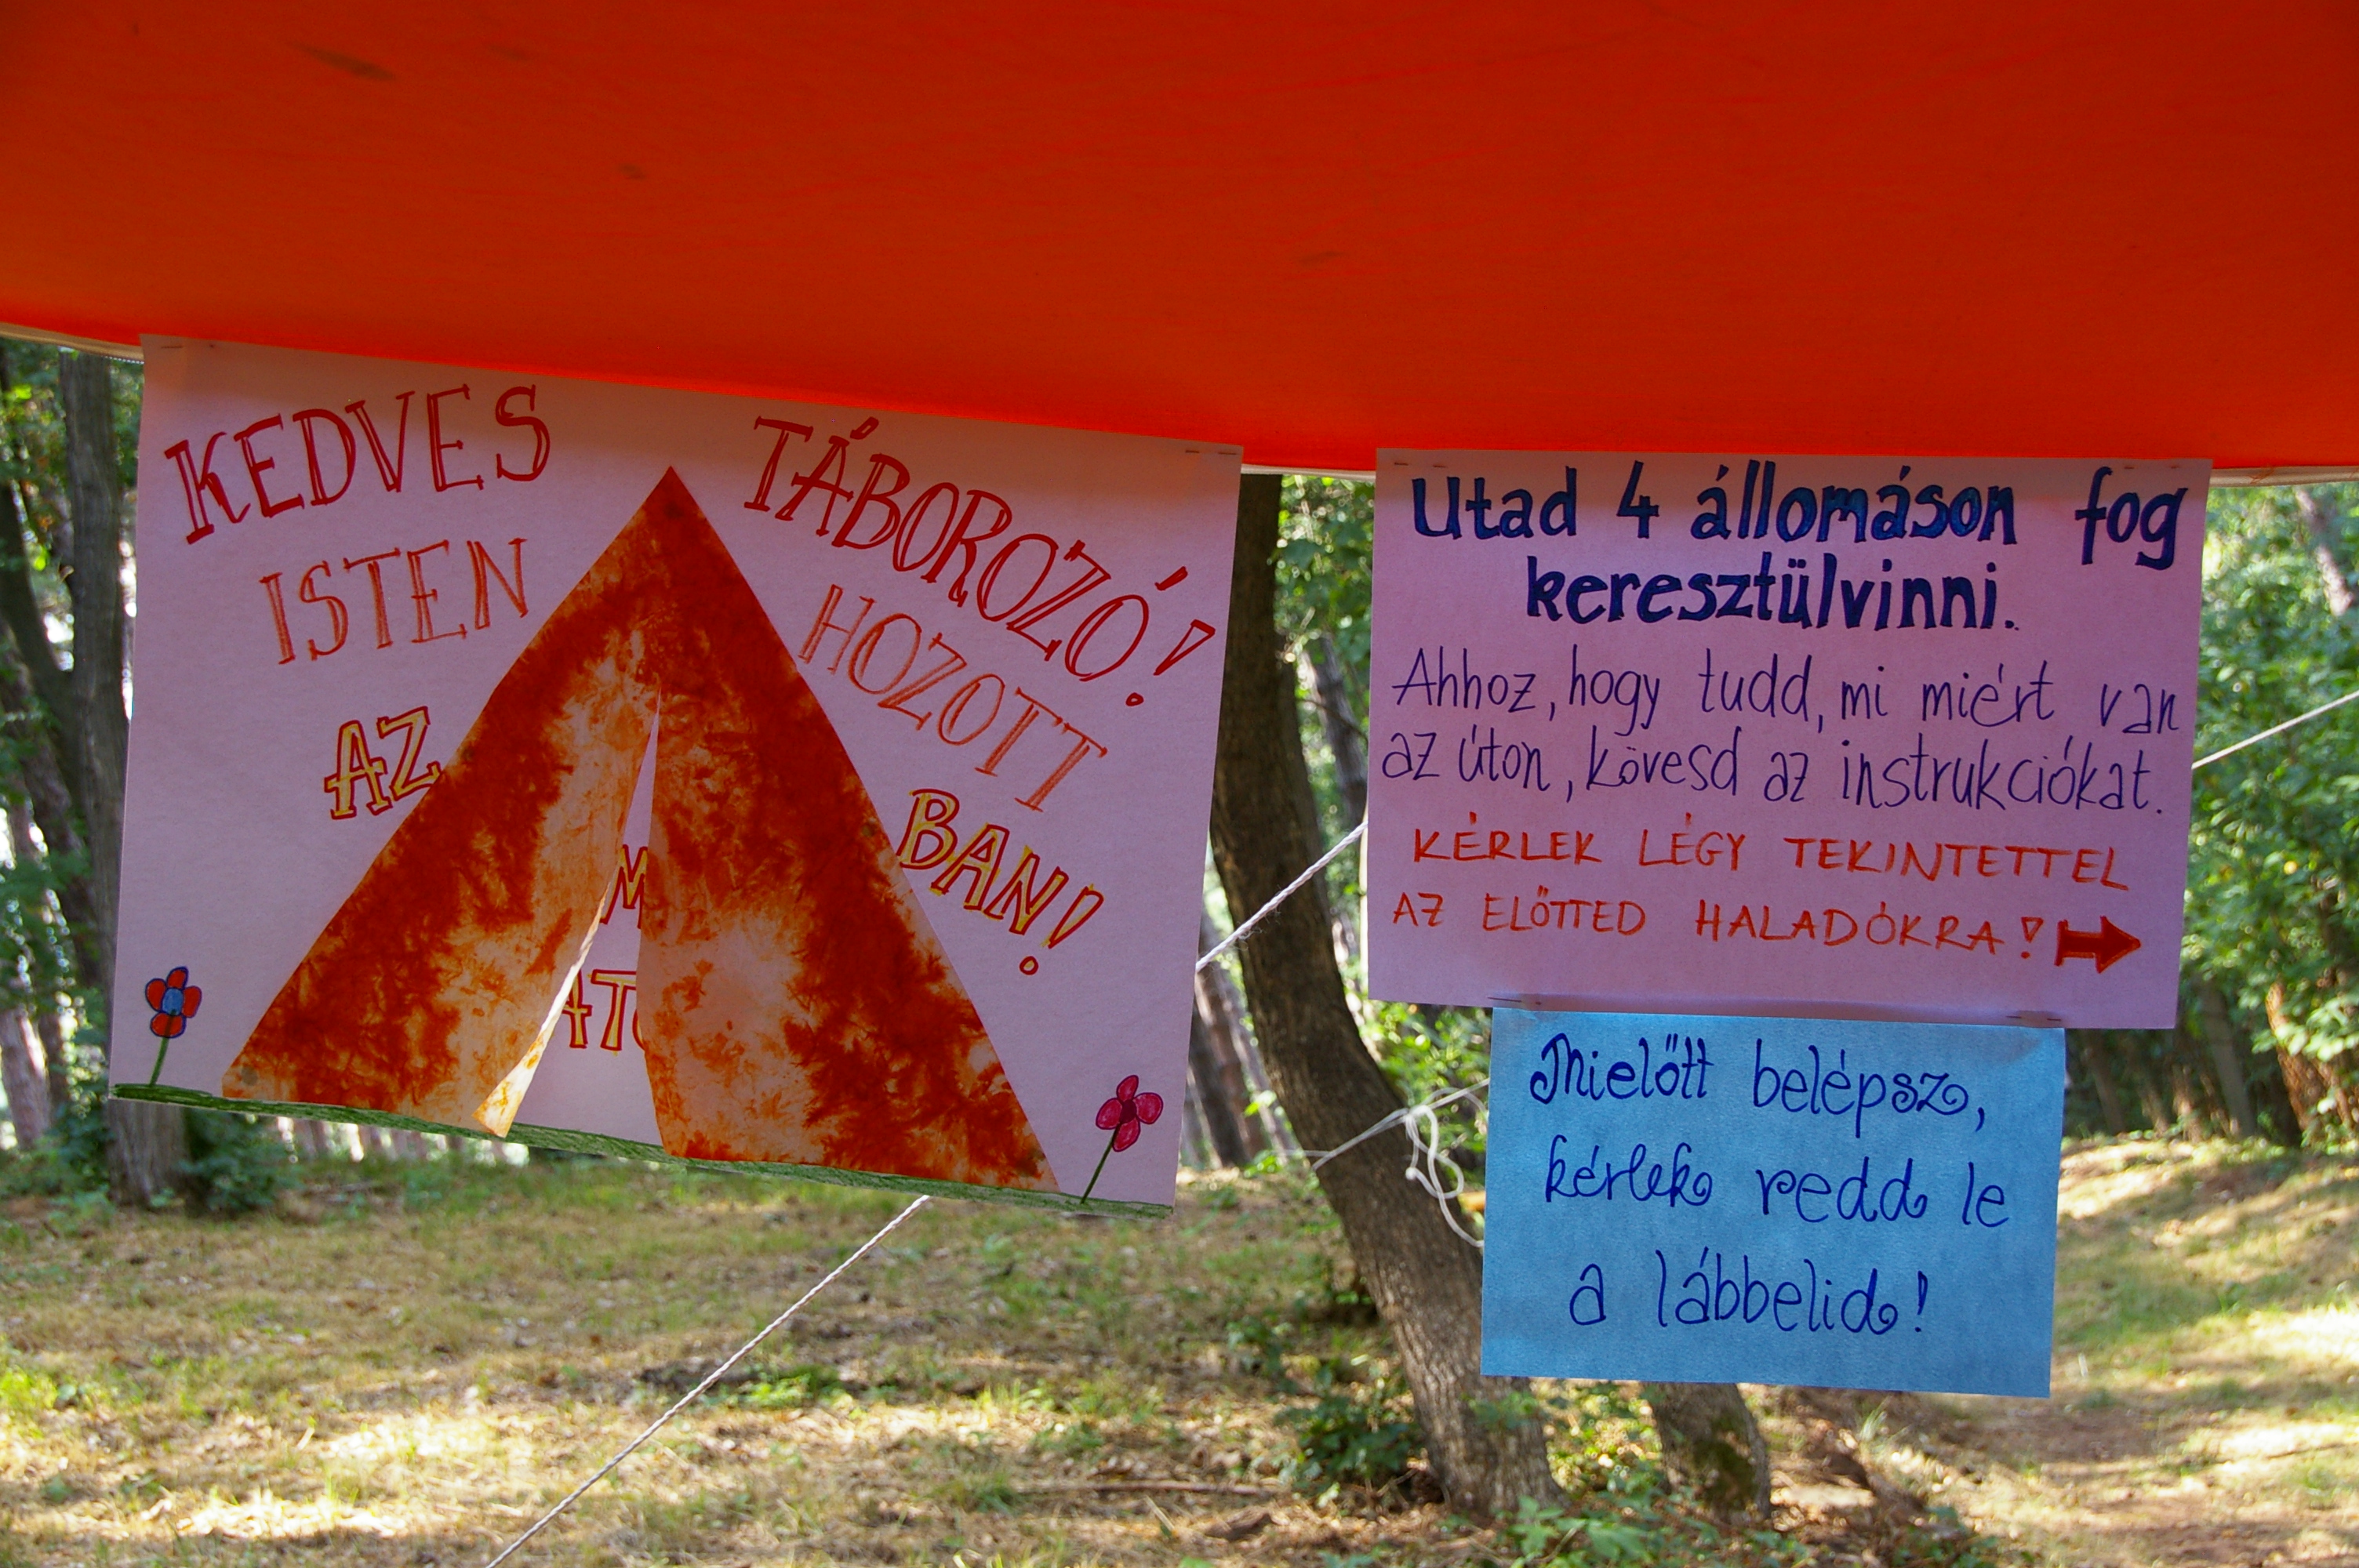 KEDVES TÁBOROZÓ!
ISTEN HOZOTT
AZ BAN!
Utad 4 állomáson fog
keresztülvinni.
Ahhoz, hogy tudd, mi miért van
az úton, kövesd az instrukciókat.
KÉRLEK LÉGY TEKINTETTEL
AZ ELŐTTED HALADÓKRA!
Mielőtt belépsz,
kérlek redd le
a lábbelid!